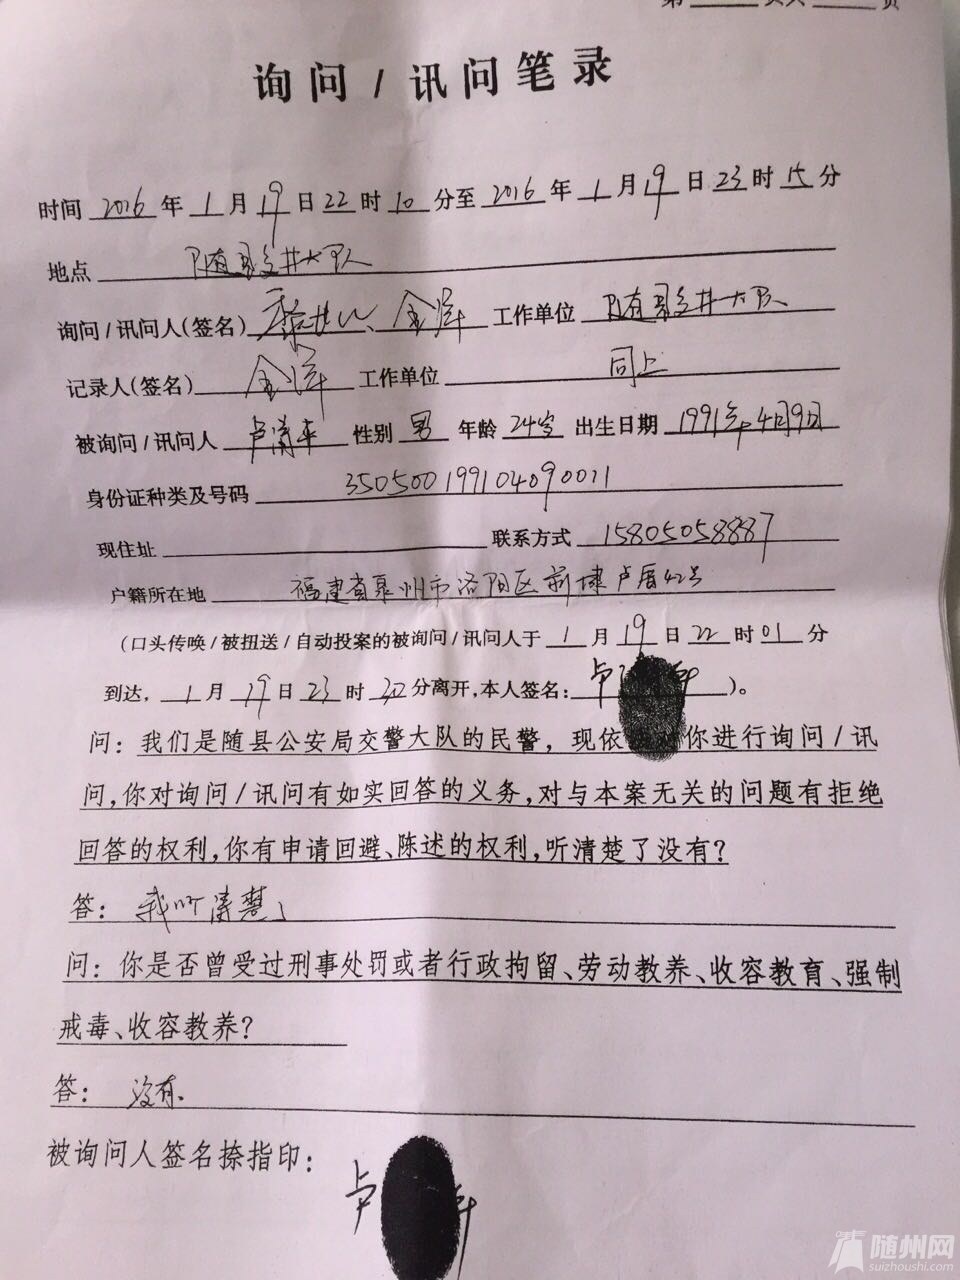 第______页共______页
询问/讯问笔录
时间 2016 年 1 月 19 日 22 时 10 分至 2016 年 1 月 19 日 23 时 15 分
地点 随县交井大队
询问/讯问人(签名) 金洋 工作单位 随县交井大队
记录人(签名) 金洋 工作单位 同上
被询问/讯问人 卢 性别 男 年龄 24岁 出生日期 1991年4月9日
身份证种类及号码 350500199104090011
现住址 联系方式 15805058887
户籍所在地 福建省泉州市洛阳区 卢厝42号
(口头传唤/被扭送/自动投案的被询问/讯问人于 1 月 19 日 22 时 01 分
到达, 1 月 19 日 23 时 30 分离开,本人签名: 卢 )。
问: 我们是随县公安局交警大队的民警, 现依 你进行询问/讯
问,你对询问/讯问有如实回答的义务,对与本案无关的问题有拒绝
回答的权利,你有申请回避、陈述的权利,听清楚了没有?
答: 我听清楚了
问: 你是否曾受过刑事处罚或者行政拘留、劳动教养、收容教育、强制
戒毒、收容教养?
答: 没有.
被询问人签名捺指印:
卢
随州网
suizhoushi.com